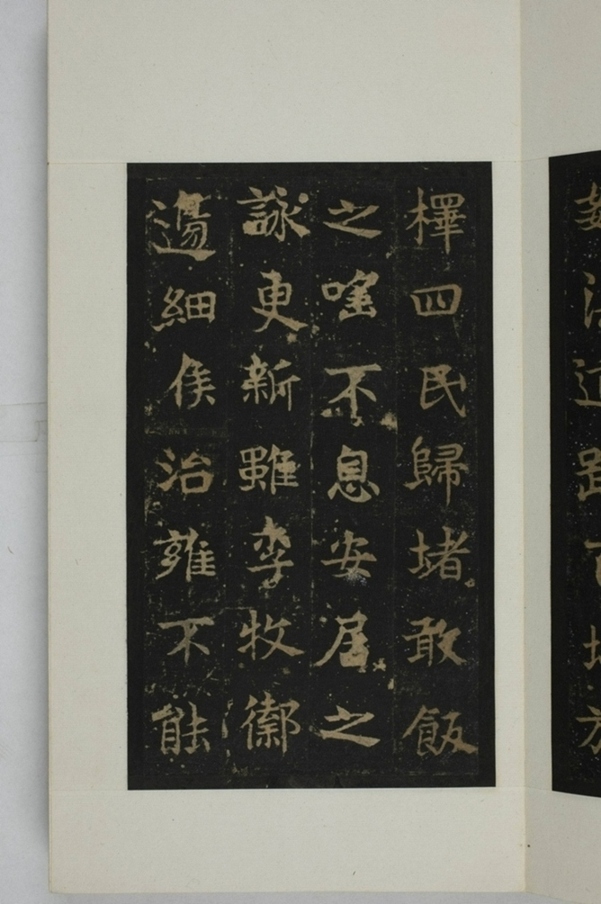 檡四民歸堵敢飯
之嗂不息安居之
詠更新雖李牧御
邊細侯治雍不能